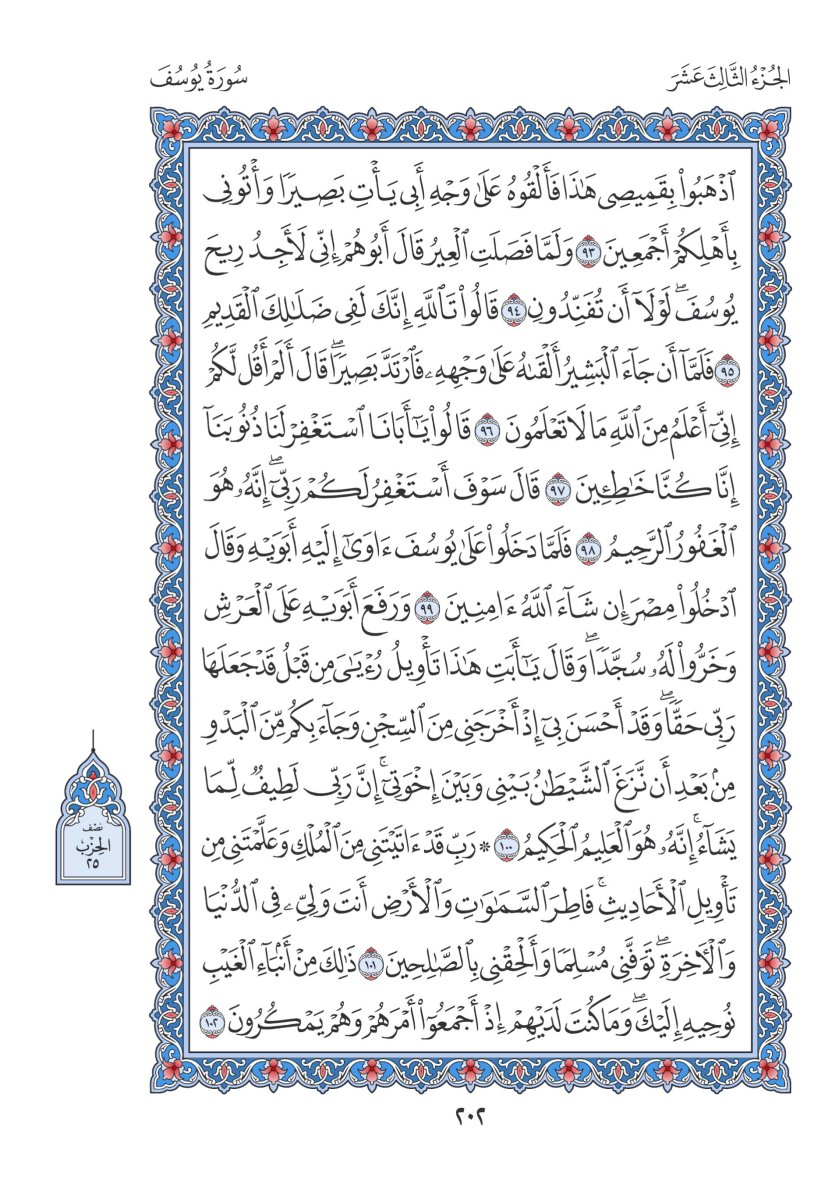 الجُزْءُ الثَّالِثَ عَشَرَ
سُورَةُ يُوسُفَ
ٱذۡهَبُواْ بِقَمِيصِي هَٰذَا فَأَلۡقُوهُ عَلَىٰ وَجۡهِ أَبِي يَأۡتِ بَصِيرٗا وَأۡتُونِي
بِأَهۡلِكُمۡ أَجۡمَعِينَ ٩٣ وَلَمَّا فَصَلَتِ ٱلۡعِيرُ قَالَ أَبُوهُمۡ إِنِّي لَأَجِدُ رِيحَ
يُوسُفَۖ لَوۡلَآ أَن تُفَنِّدُونِ ٩٤ قَالُواْ تَٱللَّهِ إِنَّكَ لَفِي ضَلَٰلِكَ ٱلۡقَدِيمِ
٩٥ فَلَمَّآ أَن جَآءَ ٱلۡبَشِيرُ أَلۡقَىٰهُ عَلَىٰ وَجۡهِهِۦ فَٱرۡتَدَّ بَصِيرٗاۖ قَالَ أَلَمۡ أَقُل لَّكُمۡ
إِنِّيٓ أَعۡلَمُ مِنَ ٱللَّهِ مَا لَا تَعۡلَمُونَ ٩٦ قَالُواْ يَٰٓأَبَانَا ٱسۡتَغۡفِرۡ لَنَا ذُنُوبَنَآ
إِنَّا كُنَّا خَٰطِـِٔينَ ٩٧ قَالَ سَوۡفَ أَسۡتَغۡفِرُ لَكُمۡ رَبِّيٓۖ إِنَّهُۥ هُوَ
ٱلۡغَفُورُ ٱلرَّحِيمُ ٩٨ فَلَمَّا دَخَلُواْ عَلَىٰ يُوسُفَ ءَاوَىٰٓ إِلَيۡهِ أَبَوَيۡهِ وَقَالَ
ٱدۡخُلُواْ مِصۡرَ إِن شَآءَ ٱللَّهُ ءَامِنِينَ ٩٩ وَرَفَعَ أَبَوَيۡهِ عَلَى ٱلۡعَرۡشِ
وَخَرُّواْ لَهُۥ سُجَّدٗاۖ وَقَالَ يَٰٓأَبَتِ هَٰذَا تَأۡوِيلُ رُءۡيَٰيَ مِن قَبۡلُ قَدۡ جَعَلَهَا
رَبِّي حَقّٗاۖ وَقَدۡ أَحۡسَنَ بِيٓ إِذۡ أَخۡرَجَنِي مِنَ ٱلسِّجۡنِ وَجَآءَ بِكُم مِّنَ ٱلۡبَدۡوِ
مِنۢ بَعۡدِ أَن نَّزَغَ ٱلشَّيۡطَٰنُ بَيۡنِي وَبَيۡنَ إِخۡوَتِيٓۚ إِنَّ رَبِّي لَطِيفٞ لِّمَا
يَشَآءُۚ إِنَّهُۥ هُوَ ٱلۡعَلِيمُ ٱلۡحَكِيمُ ١٠٠ * رَبِّ قَدۡ ءَاتَيۡتَنِي مِنَ ٱلۡمُلۡكِ وَعَلَّمۡتَنِي مِن
تَأۡوِيلِ ٱلۡأَحَادِيثِۚ فَاطِرَ ٱلسَّمَٰوَٰتِ وَٱلۡأَرۡضِ أَنتَ وَلِيِّۦ فِي ٱلدُّنۡيَا
وَٱلۡأٓخِرَةِۖ تَوَفَّنِي مُسۡلِمٗا وَأَلۡحِقۡنِي بِٱلصَّٰلِحِينَ ١٠١ ذَٰلِكَ مِنۡ أَنۢبَآءِ ٱلۡغَيۡبِ
نُوحِيهِ إِلَيۡكَۖ وَمَا كُنتَ لَدَيۡهِمۡ إِذۡ أَجۡمَعُوٓاْ أَمۡرَهُمۡ وَهُمۡ يَمۡكُرُونَ ١٠٢
نصْف
الحِزْبِ
٢٥
٢٠٢